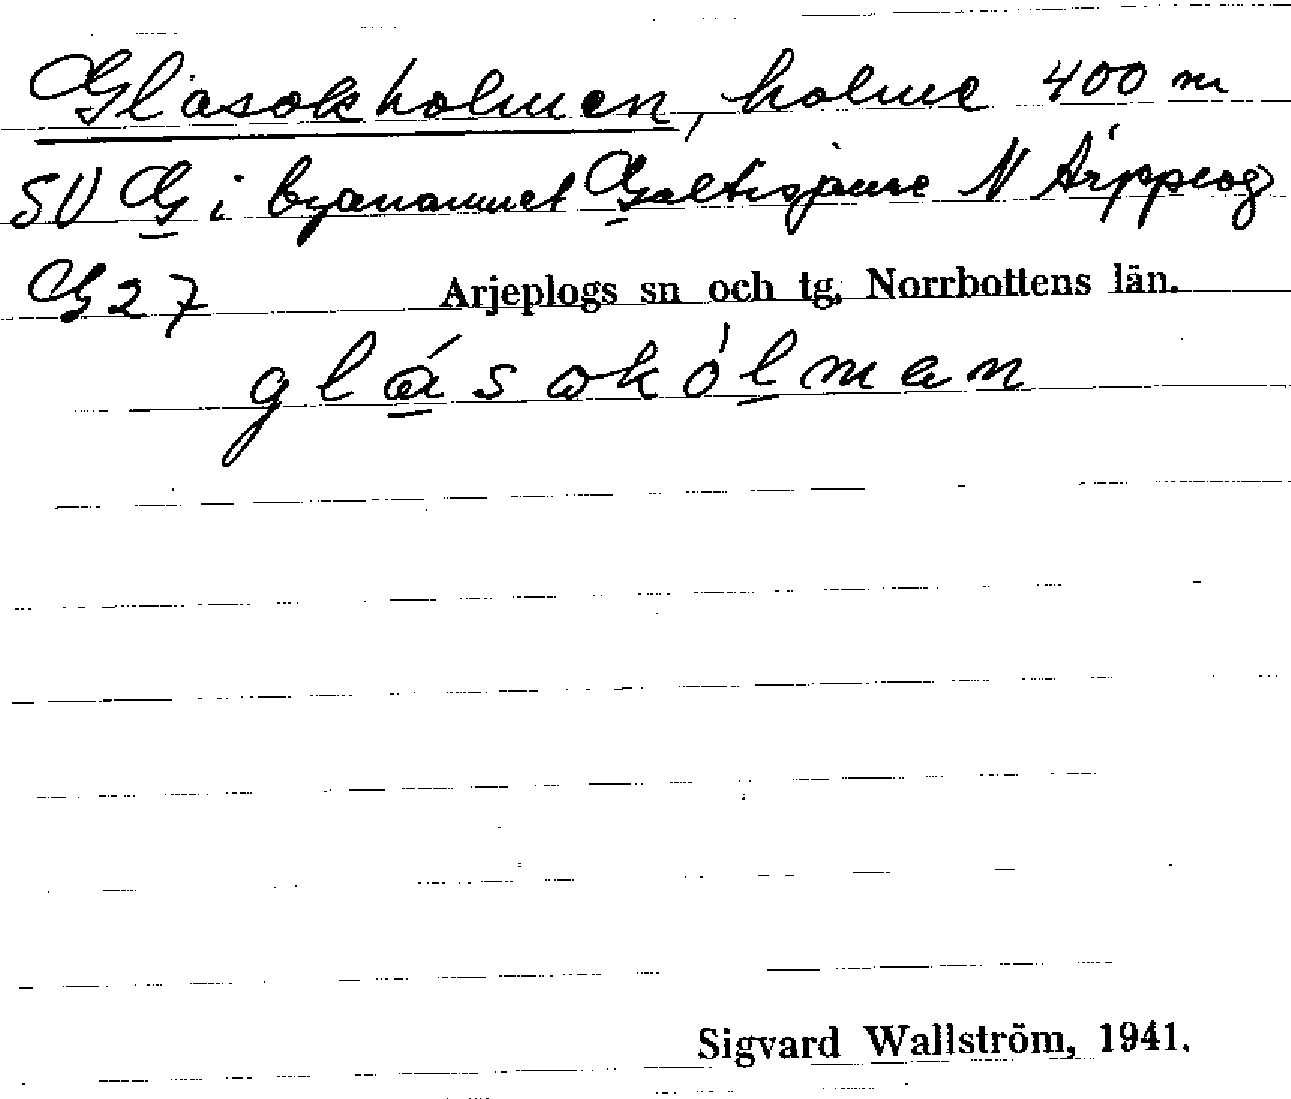 Glasokholmen, holme 400 m
SV G i byanamnet Galtisjaure N Arjeplog
G27 Arjeplogs sn och tg, Norrbottens län.
glásokólman
Sigvard Wallström, 1941.